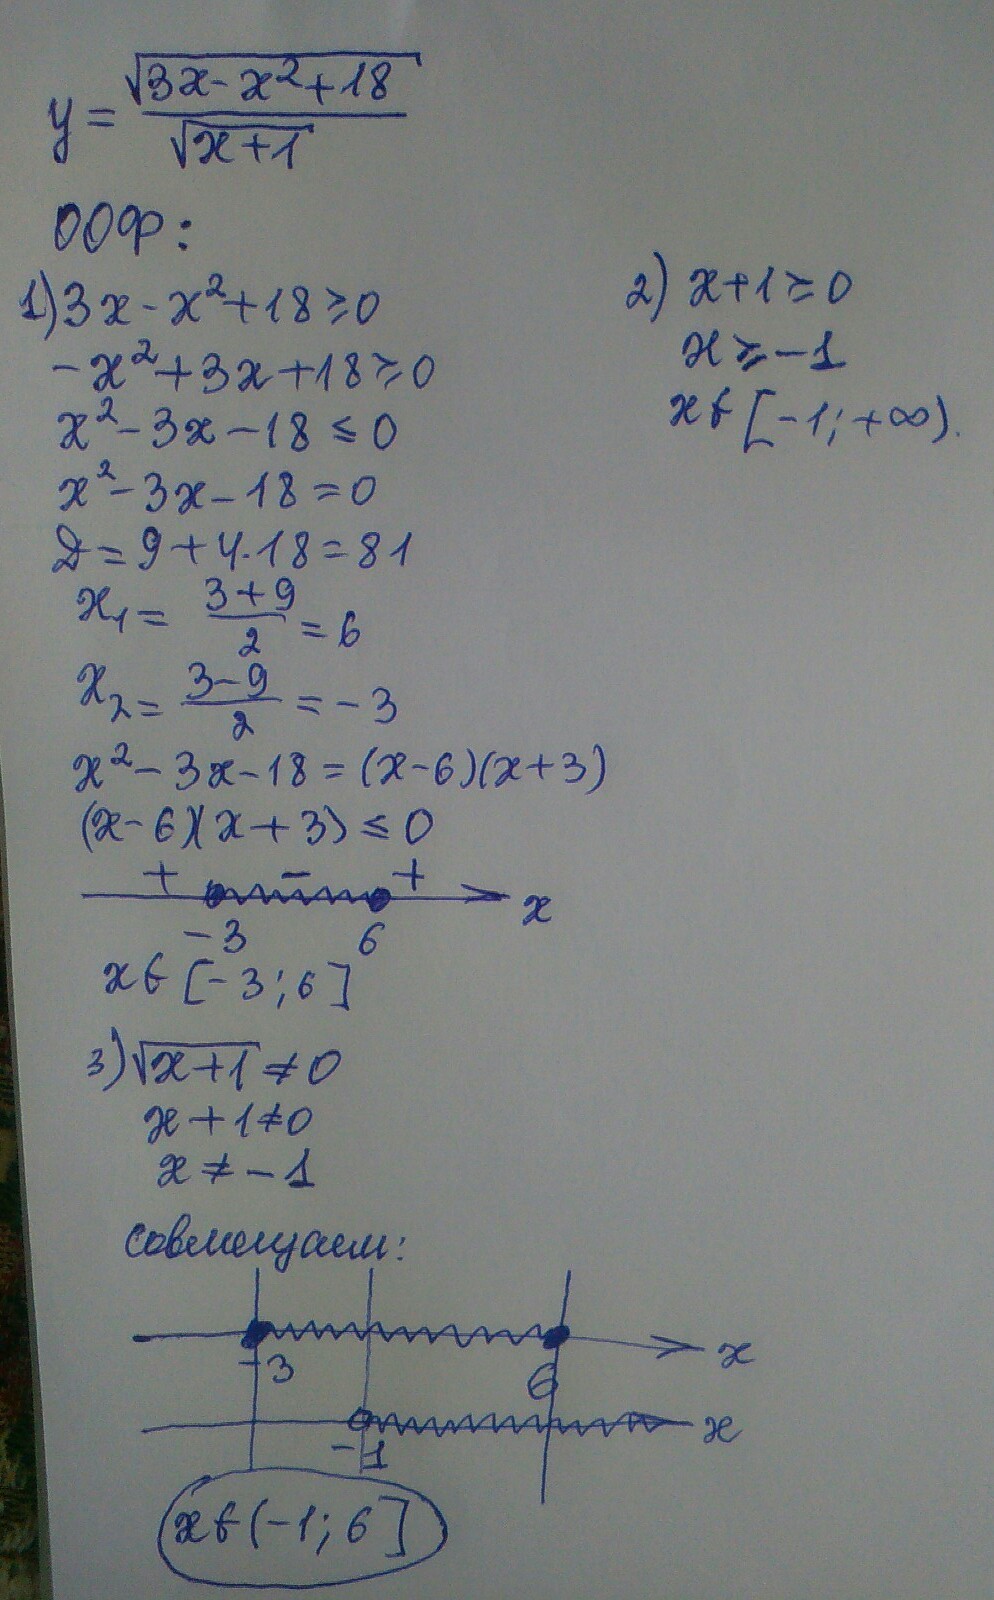 y = √(3x - x² + 18) / √(x + 1)
ООФ:
1) 3x - x² + 18 ≥ 0
-x² + 3x + 18 ≥ 0
x² - 3x - 18 ≤ 0
x² - 3x - 18 = 0
D = 9 + 4·18 = 81
x₁ = (3 + 9)/2 = 6
x₂ = (3 - 9)/2 = -3
x² - 3x - 18 = (x - 6)(x + 3)
(x - 6)(x + 3) ≤ 0
+ - +
-3 6 x
x ∈ [-3; 6]
2) x + 1 ≥ 0
x ≥ -1
x ∈ [-1; +∞).
3) √(x + 1) ≠ 0
x + 1 ≠ 0
x ≠ -1
совмещаем:
-3 6 x
-1 x
x ∈ (-1; 6]